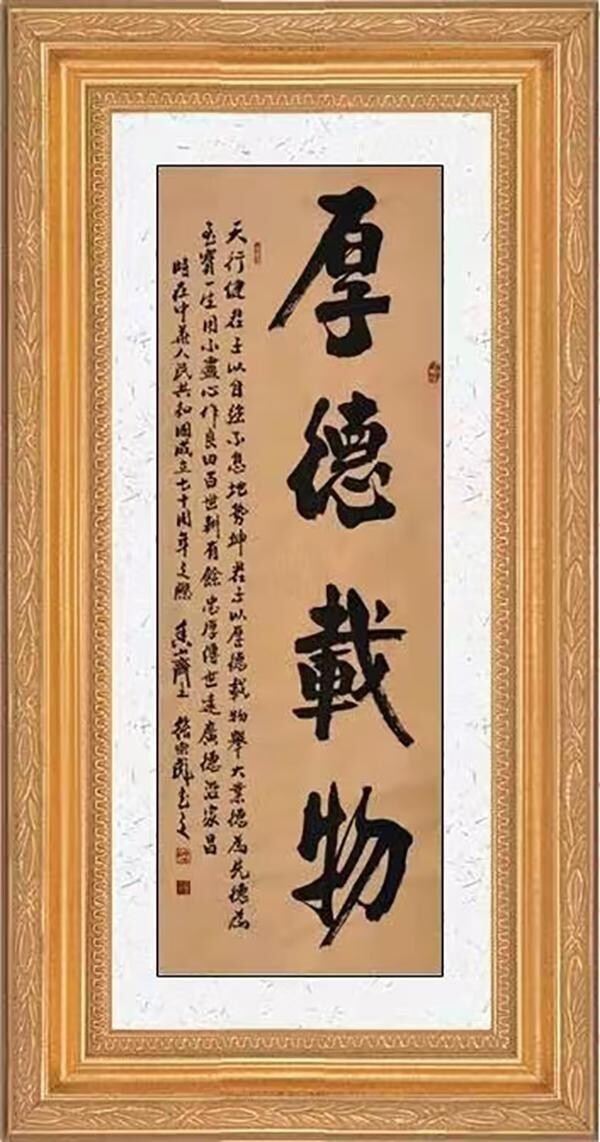 厚德載物
天行健君子以自強不息地勢坤君子以厚德載物舉大業德為先德為
至寶一生用心作良田百世耕有餘忠厚傳世遠廣德澤家昌
時在中華人民共和國成立七十周年之際